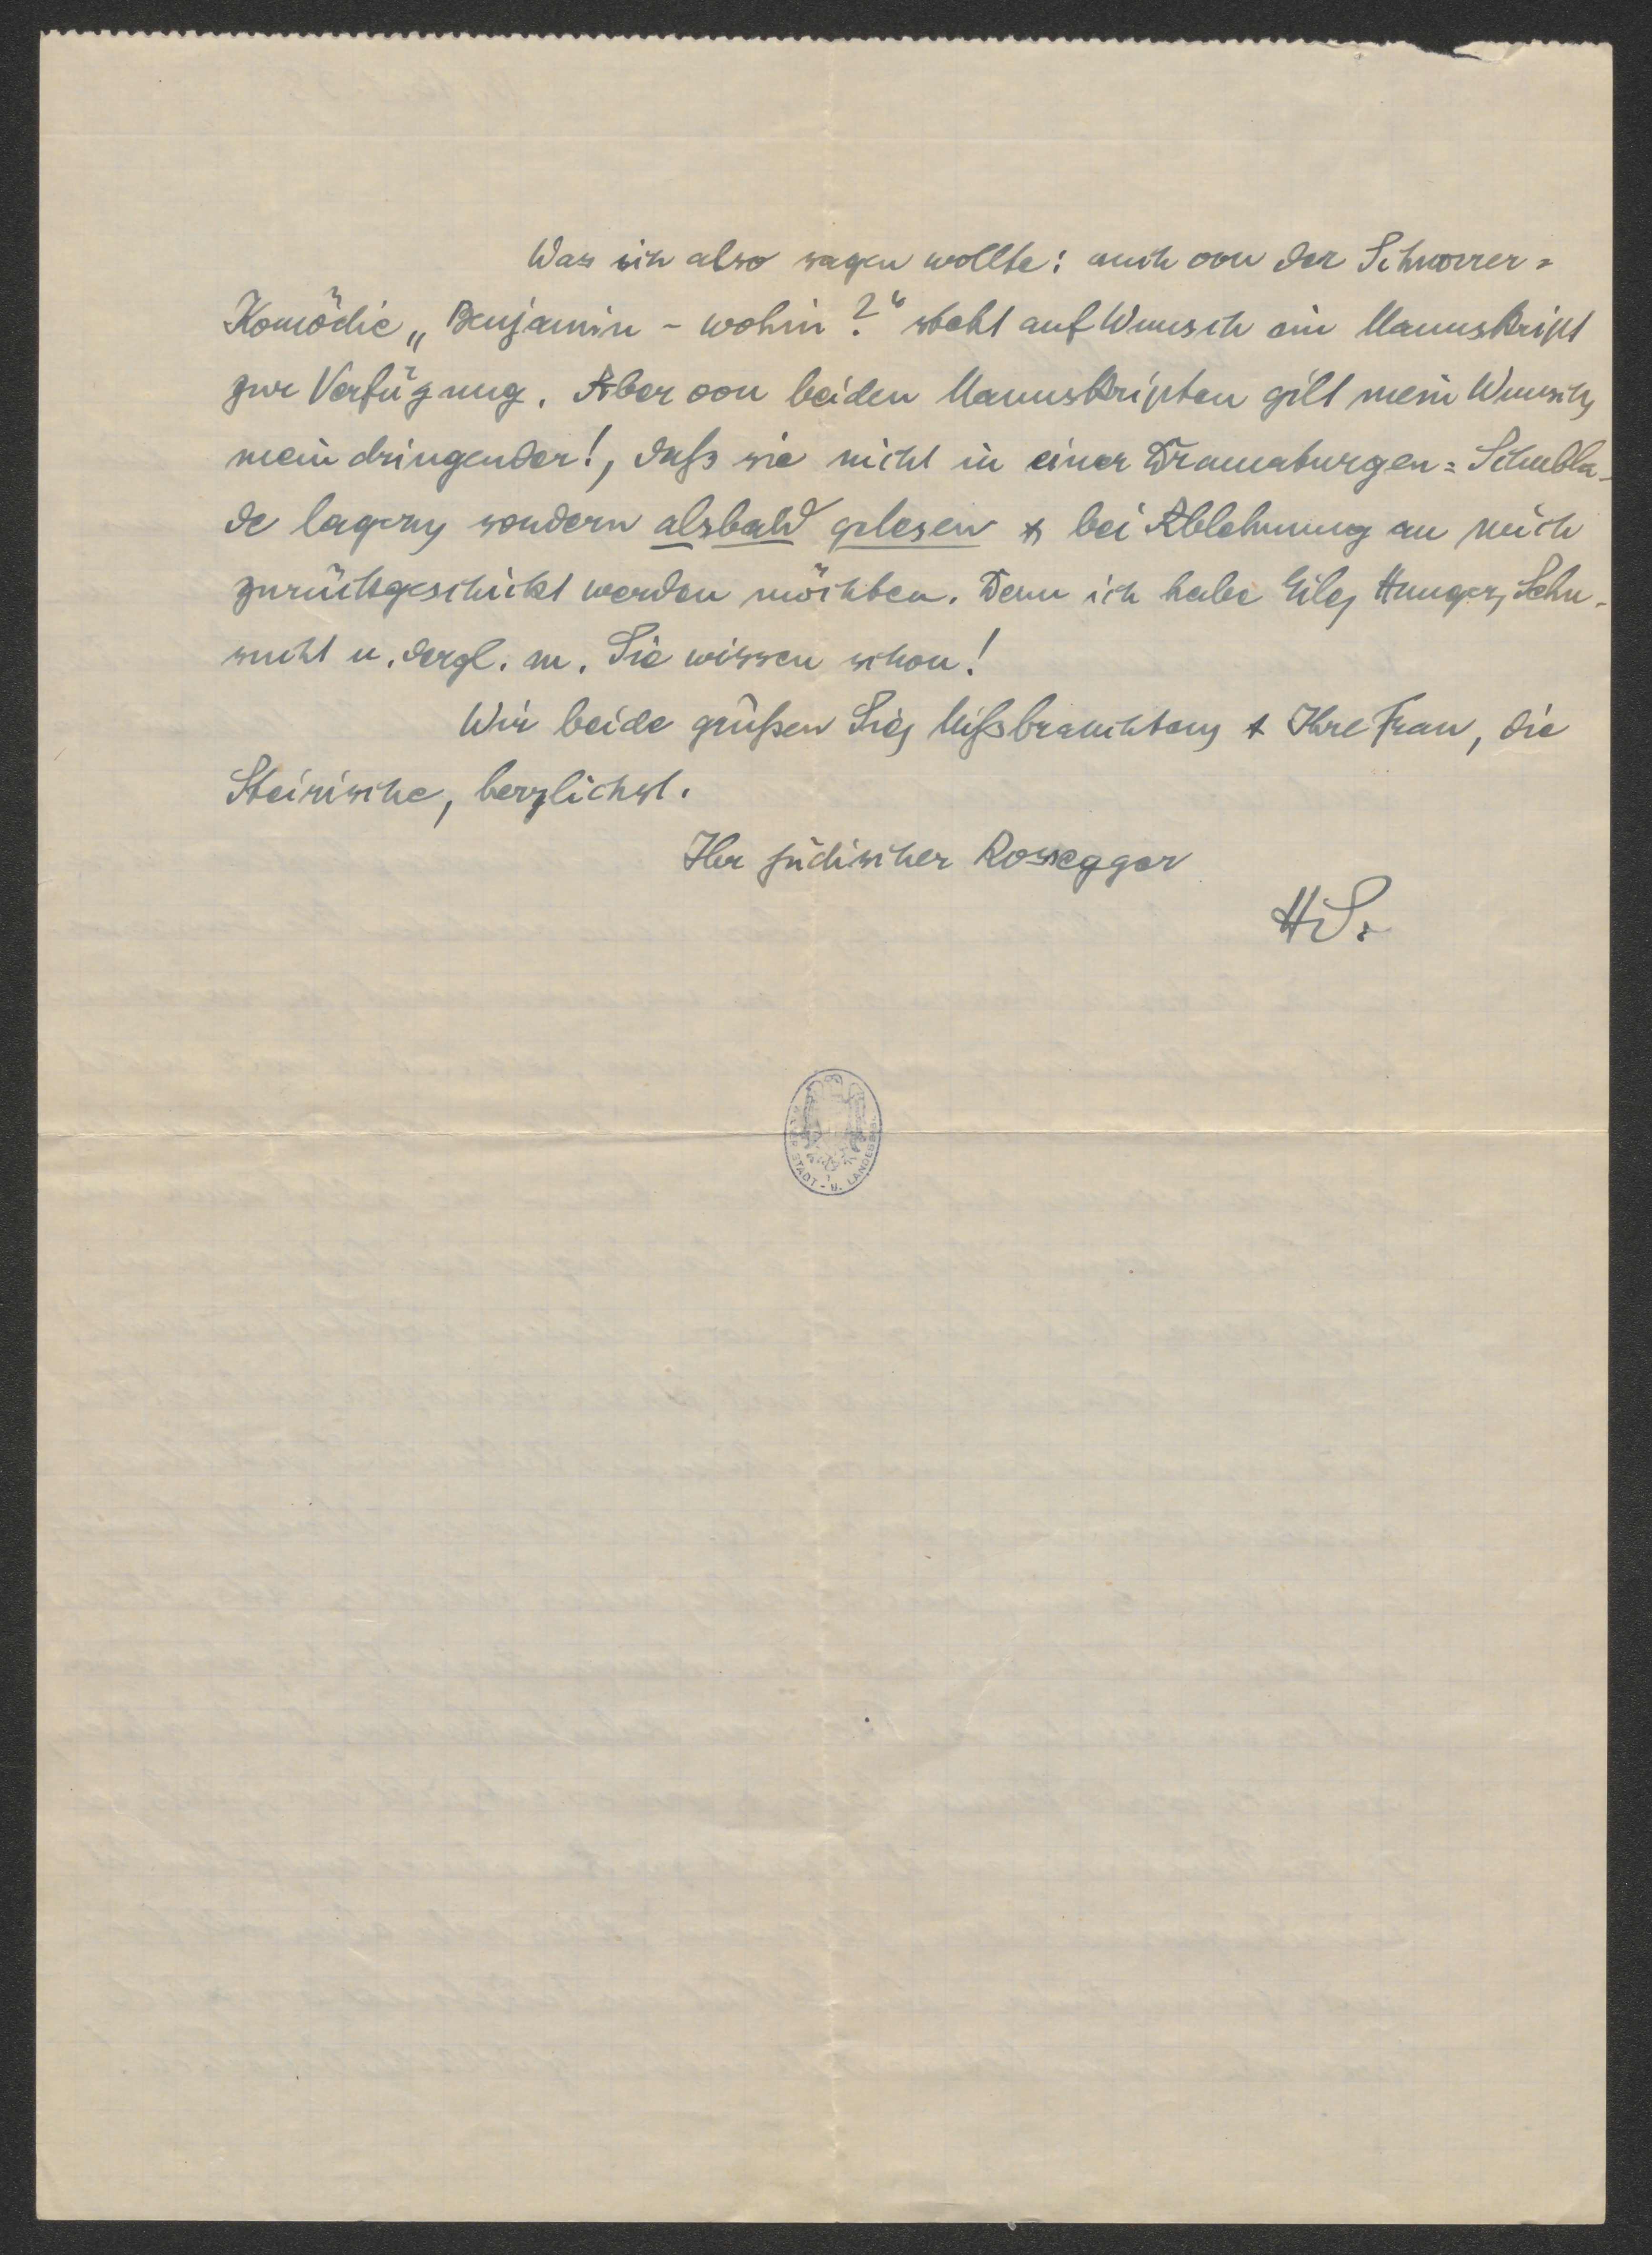 Was ich also sagen wollte: auch von der Schnorrer=
Komödie „Benjamin - wohin?“ steht auf Wunsch ein Manuskript
zur Verfügung. Aber von beiden Manuskripten gilt mein Wunsch,
mein dringender!, daß sie nicht in einer Dramaturgen=Schubla-
de lagern, sondern alsbald gelesen & bei Ablehnung an mich
zurückgeschickt werden möchten. Denn ich habe Eile, Hunger, Sehn-
sucht u. dergl. m. Sie wissen schon!
Wir beide grüßen Sie, Mißbrauchten, & Ihre Frau, die
Steirische, herzlichst.
Ihr jüdischer Rossegger
HS.
STADT- U. LANDESBIBL.